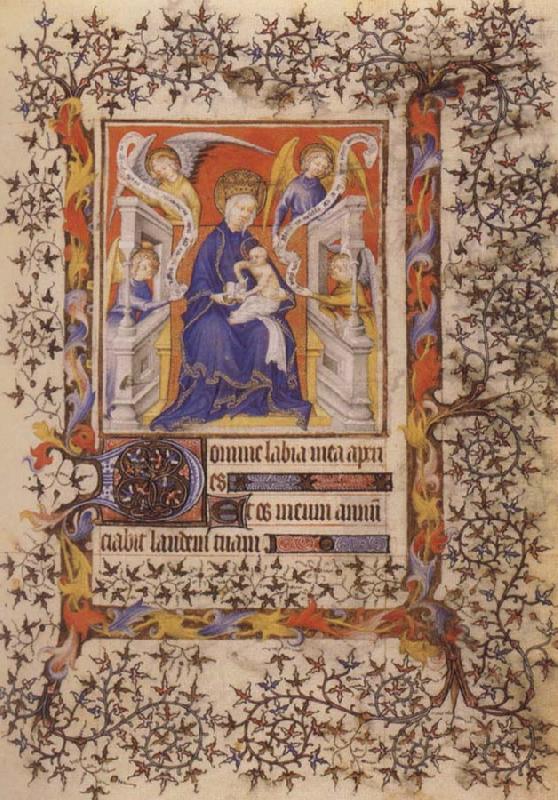 Domine labia mea apri
es
Et os meum annū
ciabit laudem tuam